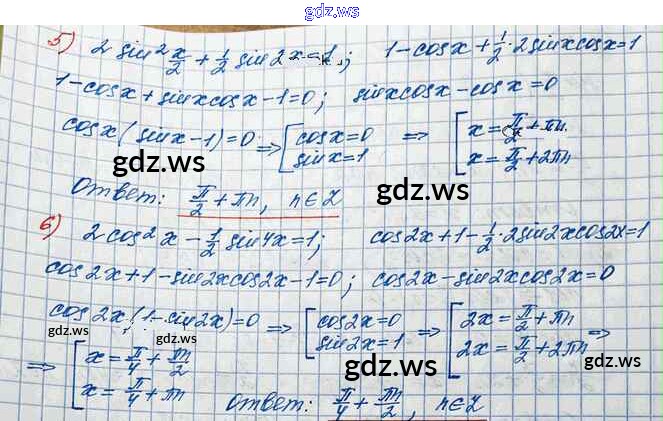 gdz.ws
5) 2 sin² x/2 + 1/2 sin 2x = 1; 1 - cosx + 1/2 · 2sinxcosx = 1
1 - cosx + sinxcosx - 1 = 0; sinxcosx - cosx = 0
cosx(sinx - 1) = 0 ⇒ [cosx = 0 sinx = 1 ⇒ [x = π/2 + πn x = π/2 + 2πn
gdz.ws
gdz.ws
Ответ: π/2 + πn, n∈Z
6) 2cos²x - 1/2 sin4x = 1; cos2x + 1 - 1/2 · 2sin2xcos2x = 1
cos2x + 1 - sin2xcos2x - 1 = 0; cos2x - sin2xcos2x = 0
cos2x(1 - sin2x) = 0 ⇒ [cos2x = 0 sin2x = 1 ⇒ [2x = π/2 + πn 2x = π/2 + 2πn ⇒
gdz.ws gdz.ws
gdz.ws
gdz.ws
⇒ [x = π/4 + πn/2 x = π/4 + πn Ответ: π/4 + πn/2, n∈Z
gdz.ws